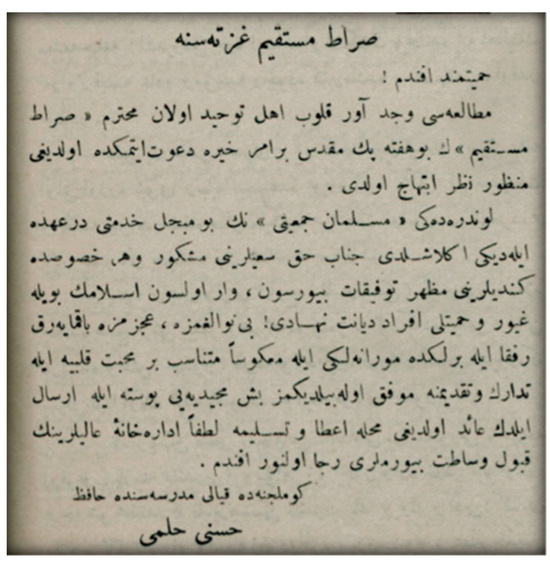 صراط مستقیم غزته‌سنه
حمیتمند افندم !
مطالعه‌سی وجد آور قلوب اهل توحید اولان محترم « صراط
مستقیم » ك بوهفته پك مقدس برامر خیره دعوت‌ایتمکده اولدیغی
منظور نظر ابتهاج اولدی .
لوندره‌ده‌کی « مسلمان جمعیتی » نك بو مبجل خدمتی درعهده
ایله‌دیکی اکلاشلدی جناب حق سعیلرینی مشکور وهر خصوصده
کندیلرینی مظهر توفیقات بیورسون ، وار اولسون اسلامك بویله
غیور و حمیتلی افراد دیانت نهادی ! بی‌نوالغمزه ، عجزمزه باقمایه‌رق
رفقا ایله برلکده مورانه‌لکی ایله معکوساً متناسب بر محبت قلبیه ایله
تدارك وتقدیمنه موفق اوله‌بیلدیکمز بش مجیدیه‌یی پوسته ایله ارسال
ایلدك عائد اولدیغی محله اعطا و تسلیمه لطفاً اداره‌خانهٔ عالیلرینك
قبول وساطت بیورملری رجا اولنور افندم .
کوملجنه‌ده قیالی مدرسه‌سنده حافظ
حسنی حلمی